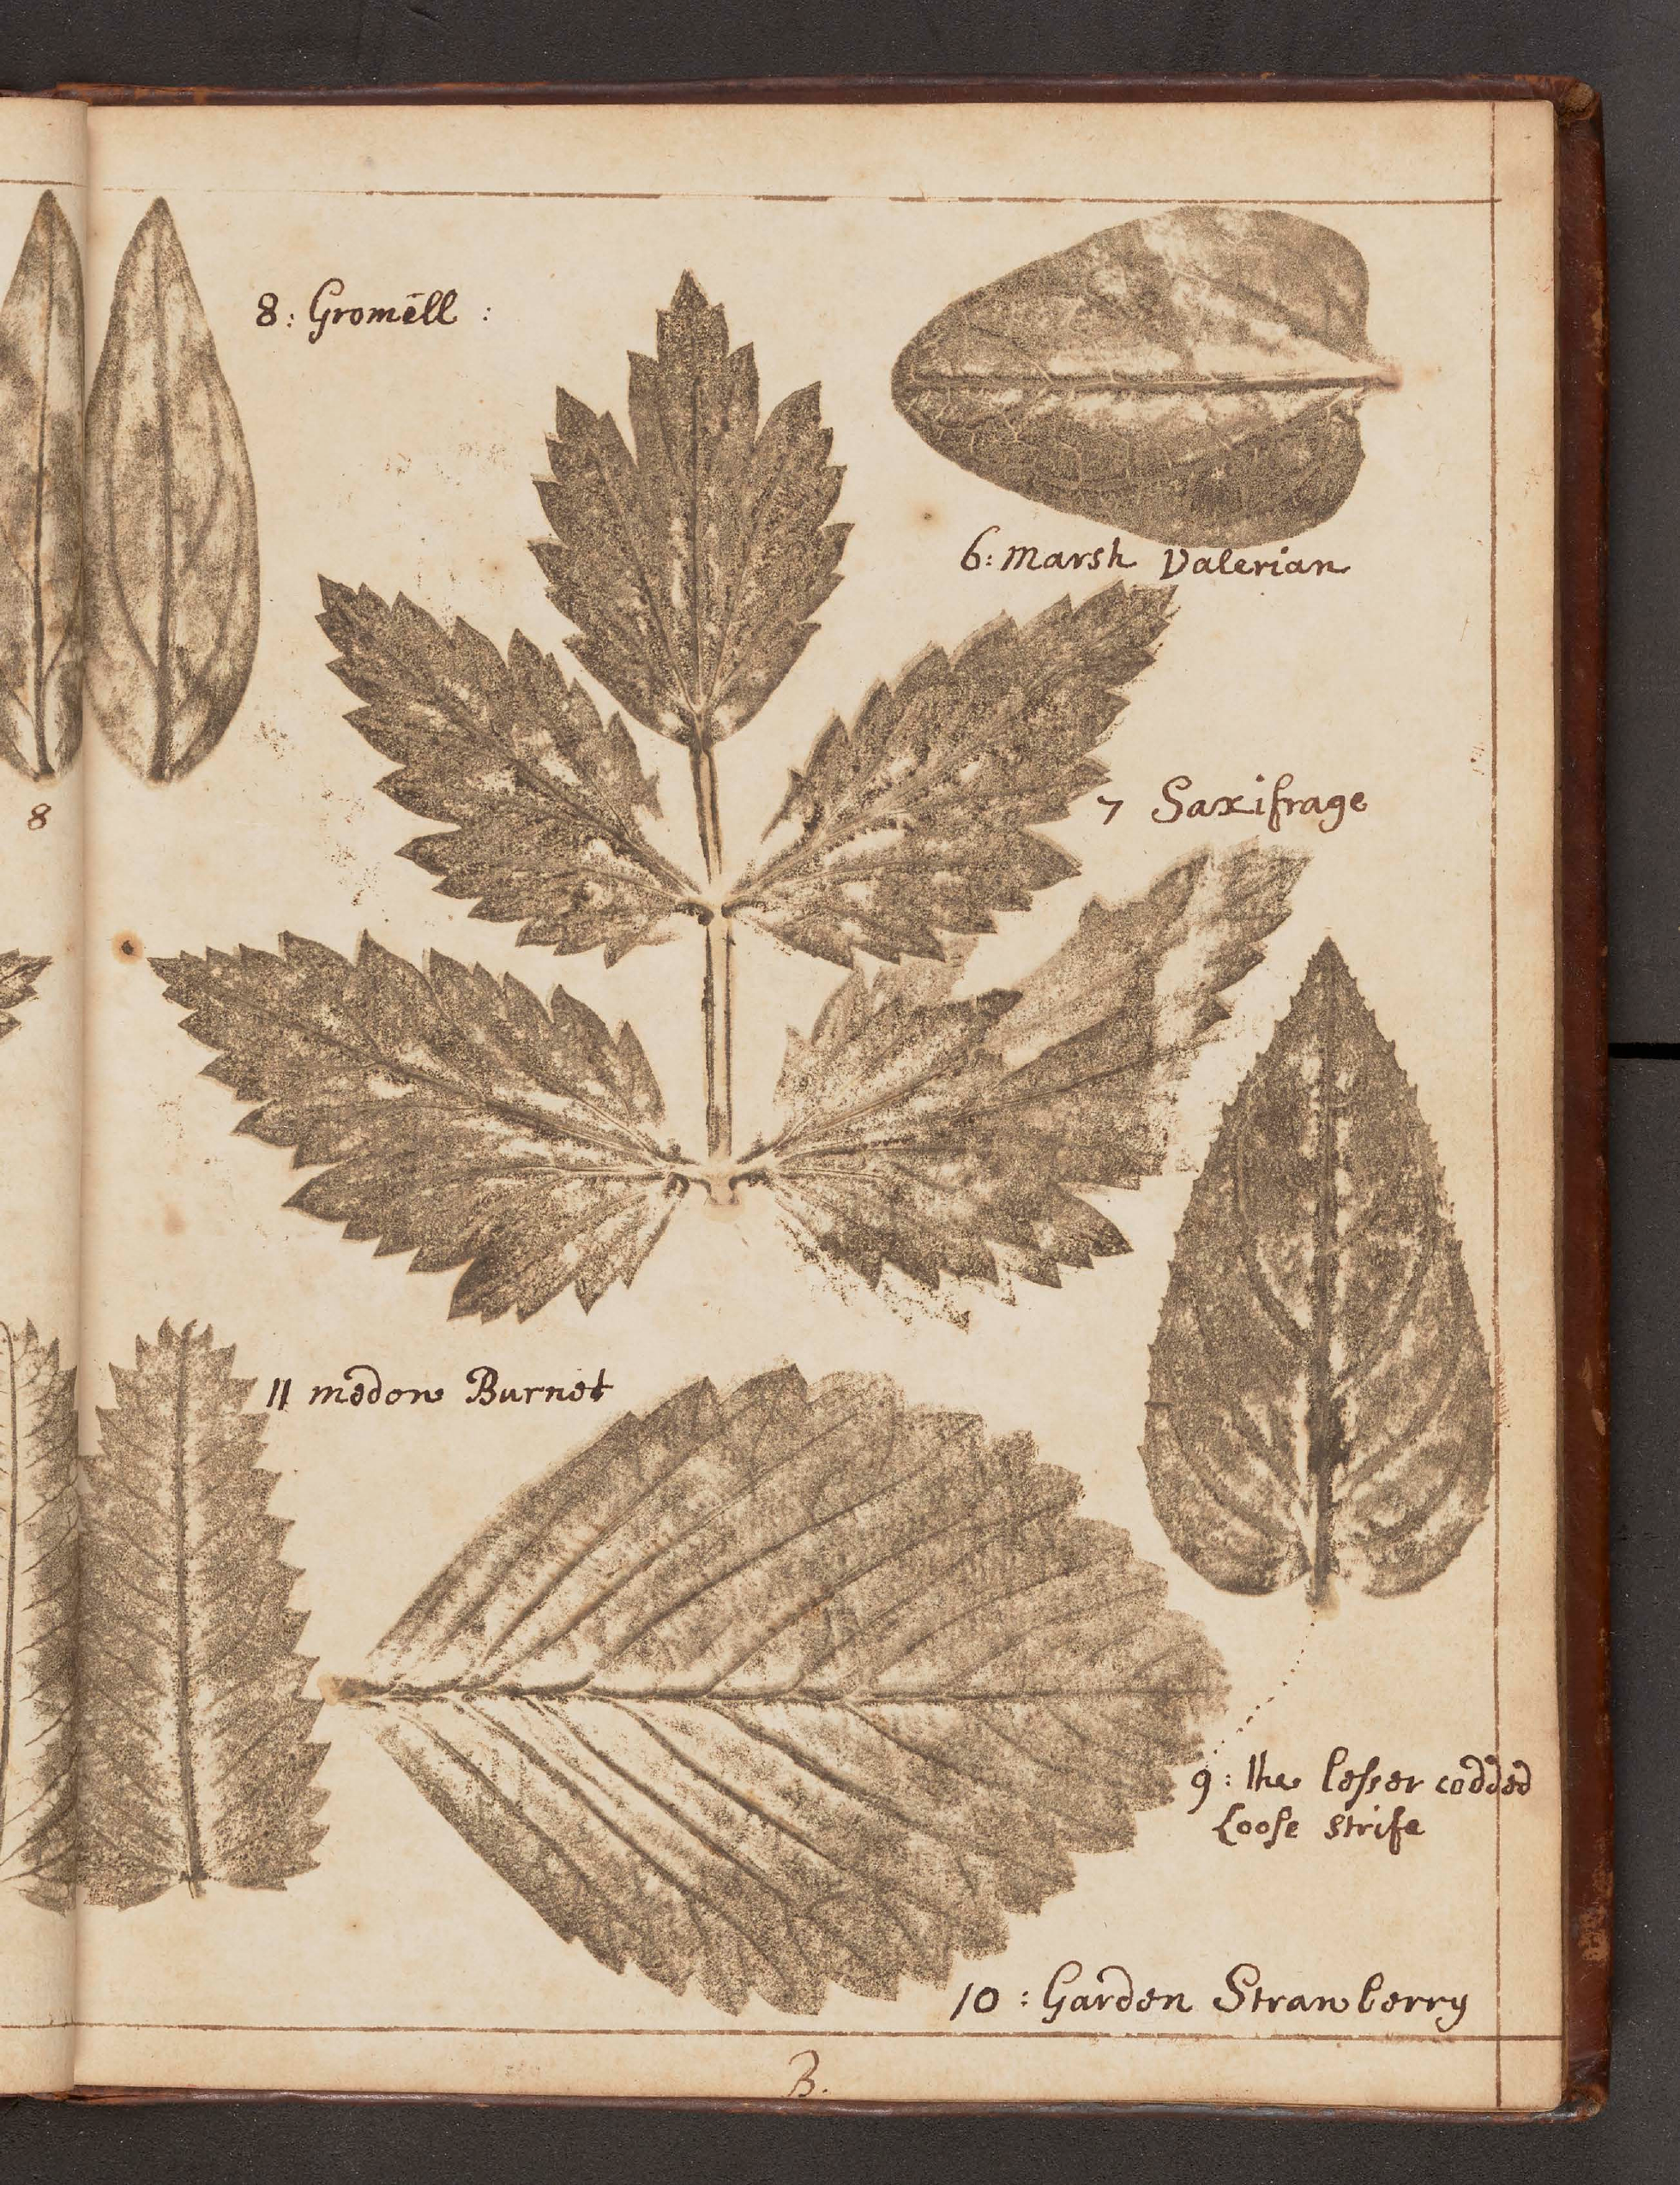 8: Gromēll :
6: Marsh Valerian
7 Saxifrage
8
11 medow Burnet
9: the leſser codded
Looſe strife
10: Garden Strawberry
B.